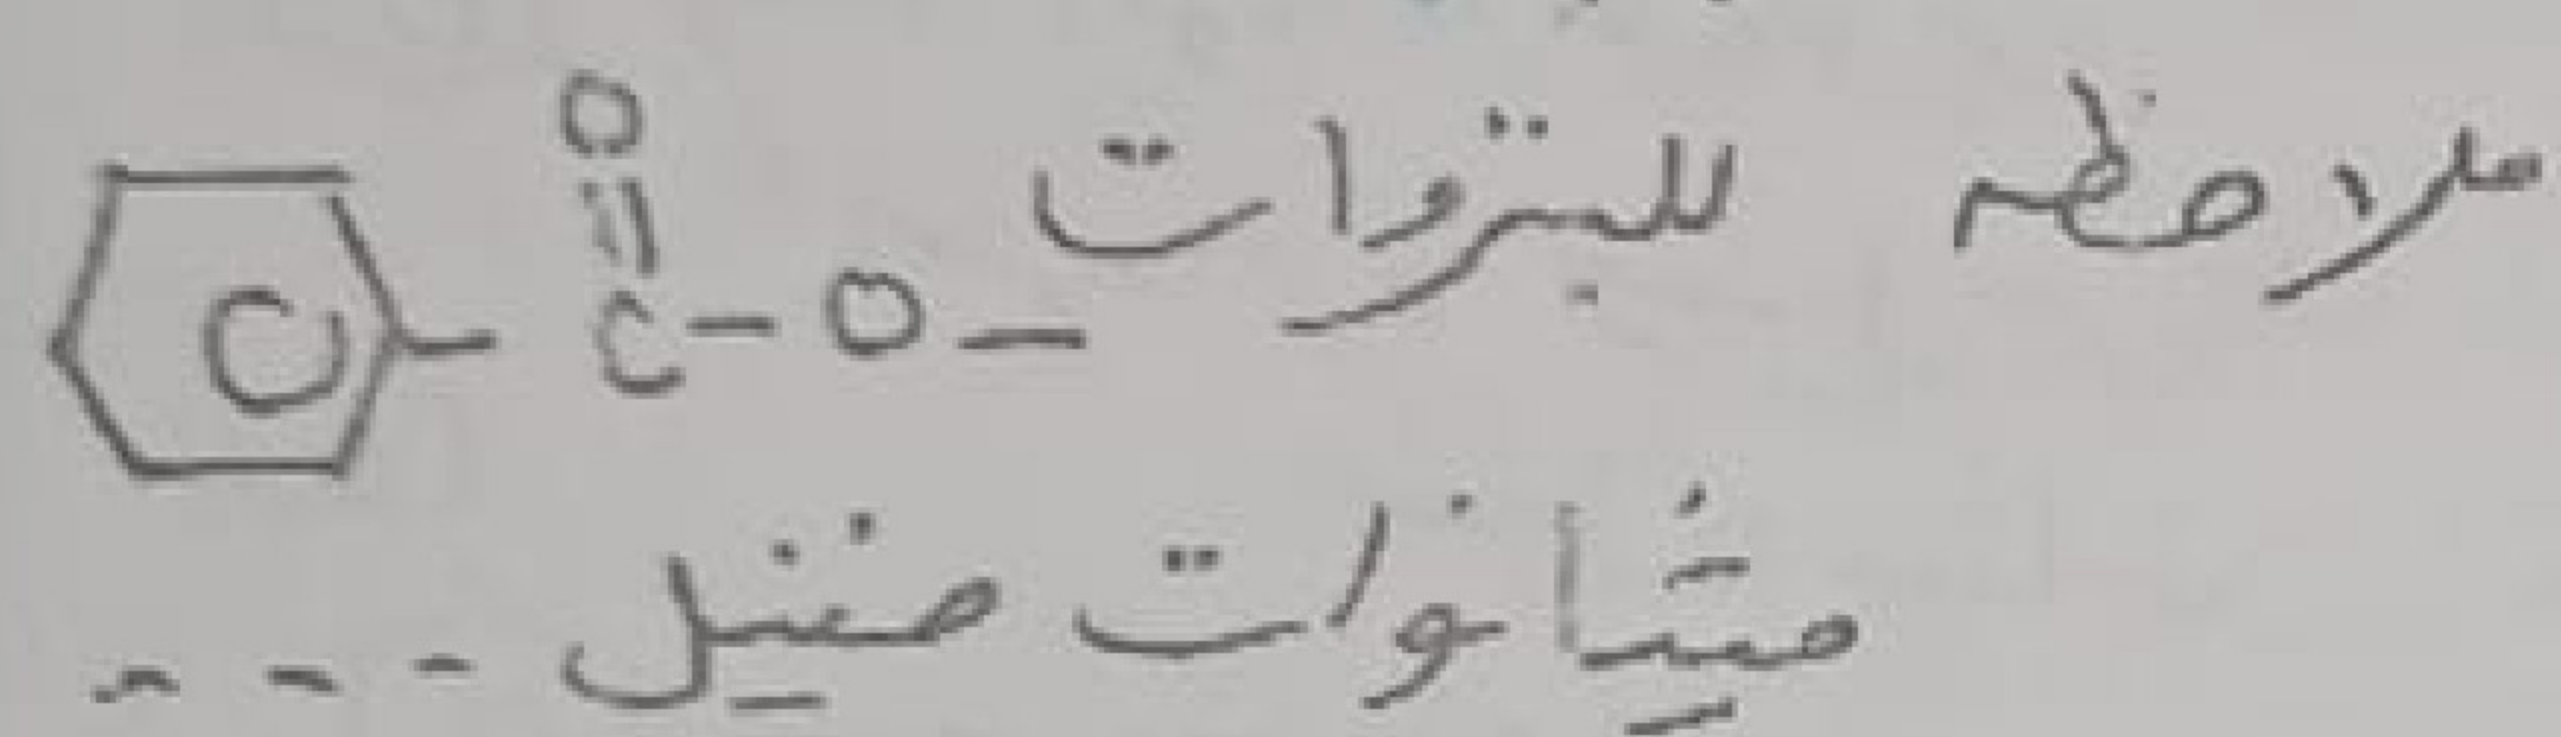 ملاحظه للبنزوات
O
C-O-
ميثانوات فنيل ---